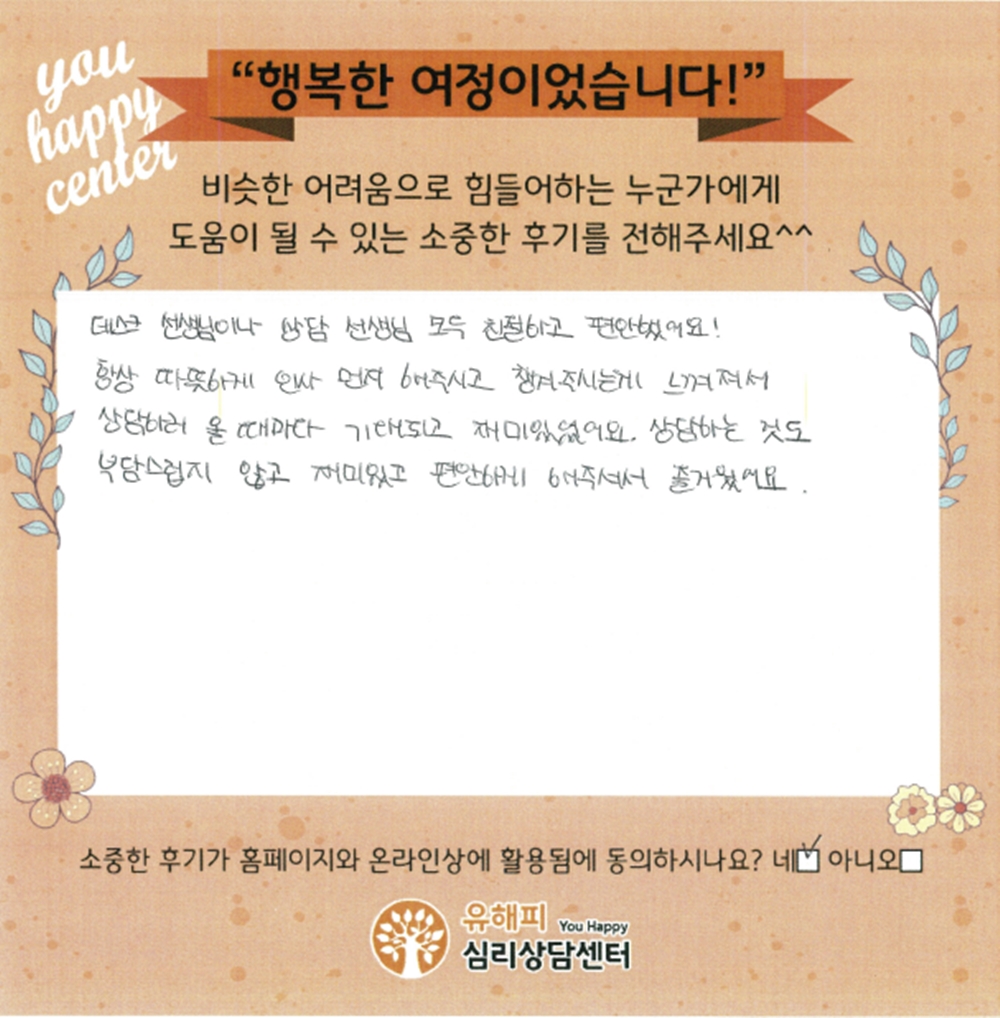 you
happy
center
“행복한 여정이었습니다!”
비슷한 어려움으로 힘들어하는 누군가에게
도움이 될 수 있는 소중한 후기를 전해주세요^^
데스크 선생님이나 상담 선생님 모두 친절하고 편안했어요!
항상 따뜻하게 인사 먼저 해주시고 챙겨주시는게 느껴져서
상담하러 올 때마다 기대되고 재미있었어요. 상담하는 것도
부담스럽지 않고 재미있고 편안하게 해주셔서 즐거웠어요.
소중한 후기가 홈페이지와 온라인상에 활용됨에 동의하시나요? 네☑ 아니오☐
유해피 You Happy
심리상담센터